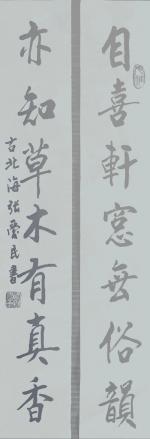 自喜軒窓無俗韻
亦知草木有真香
古北海張愛民書